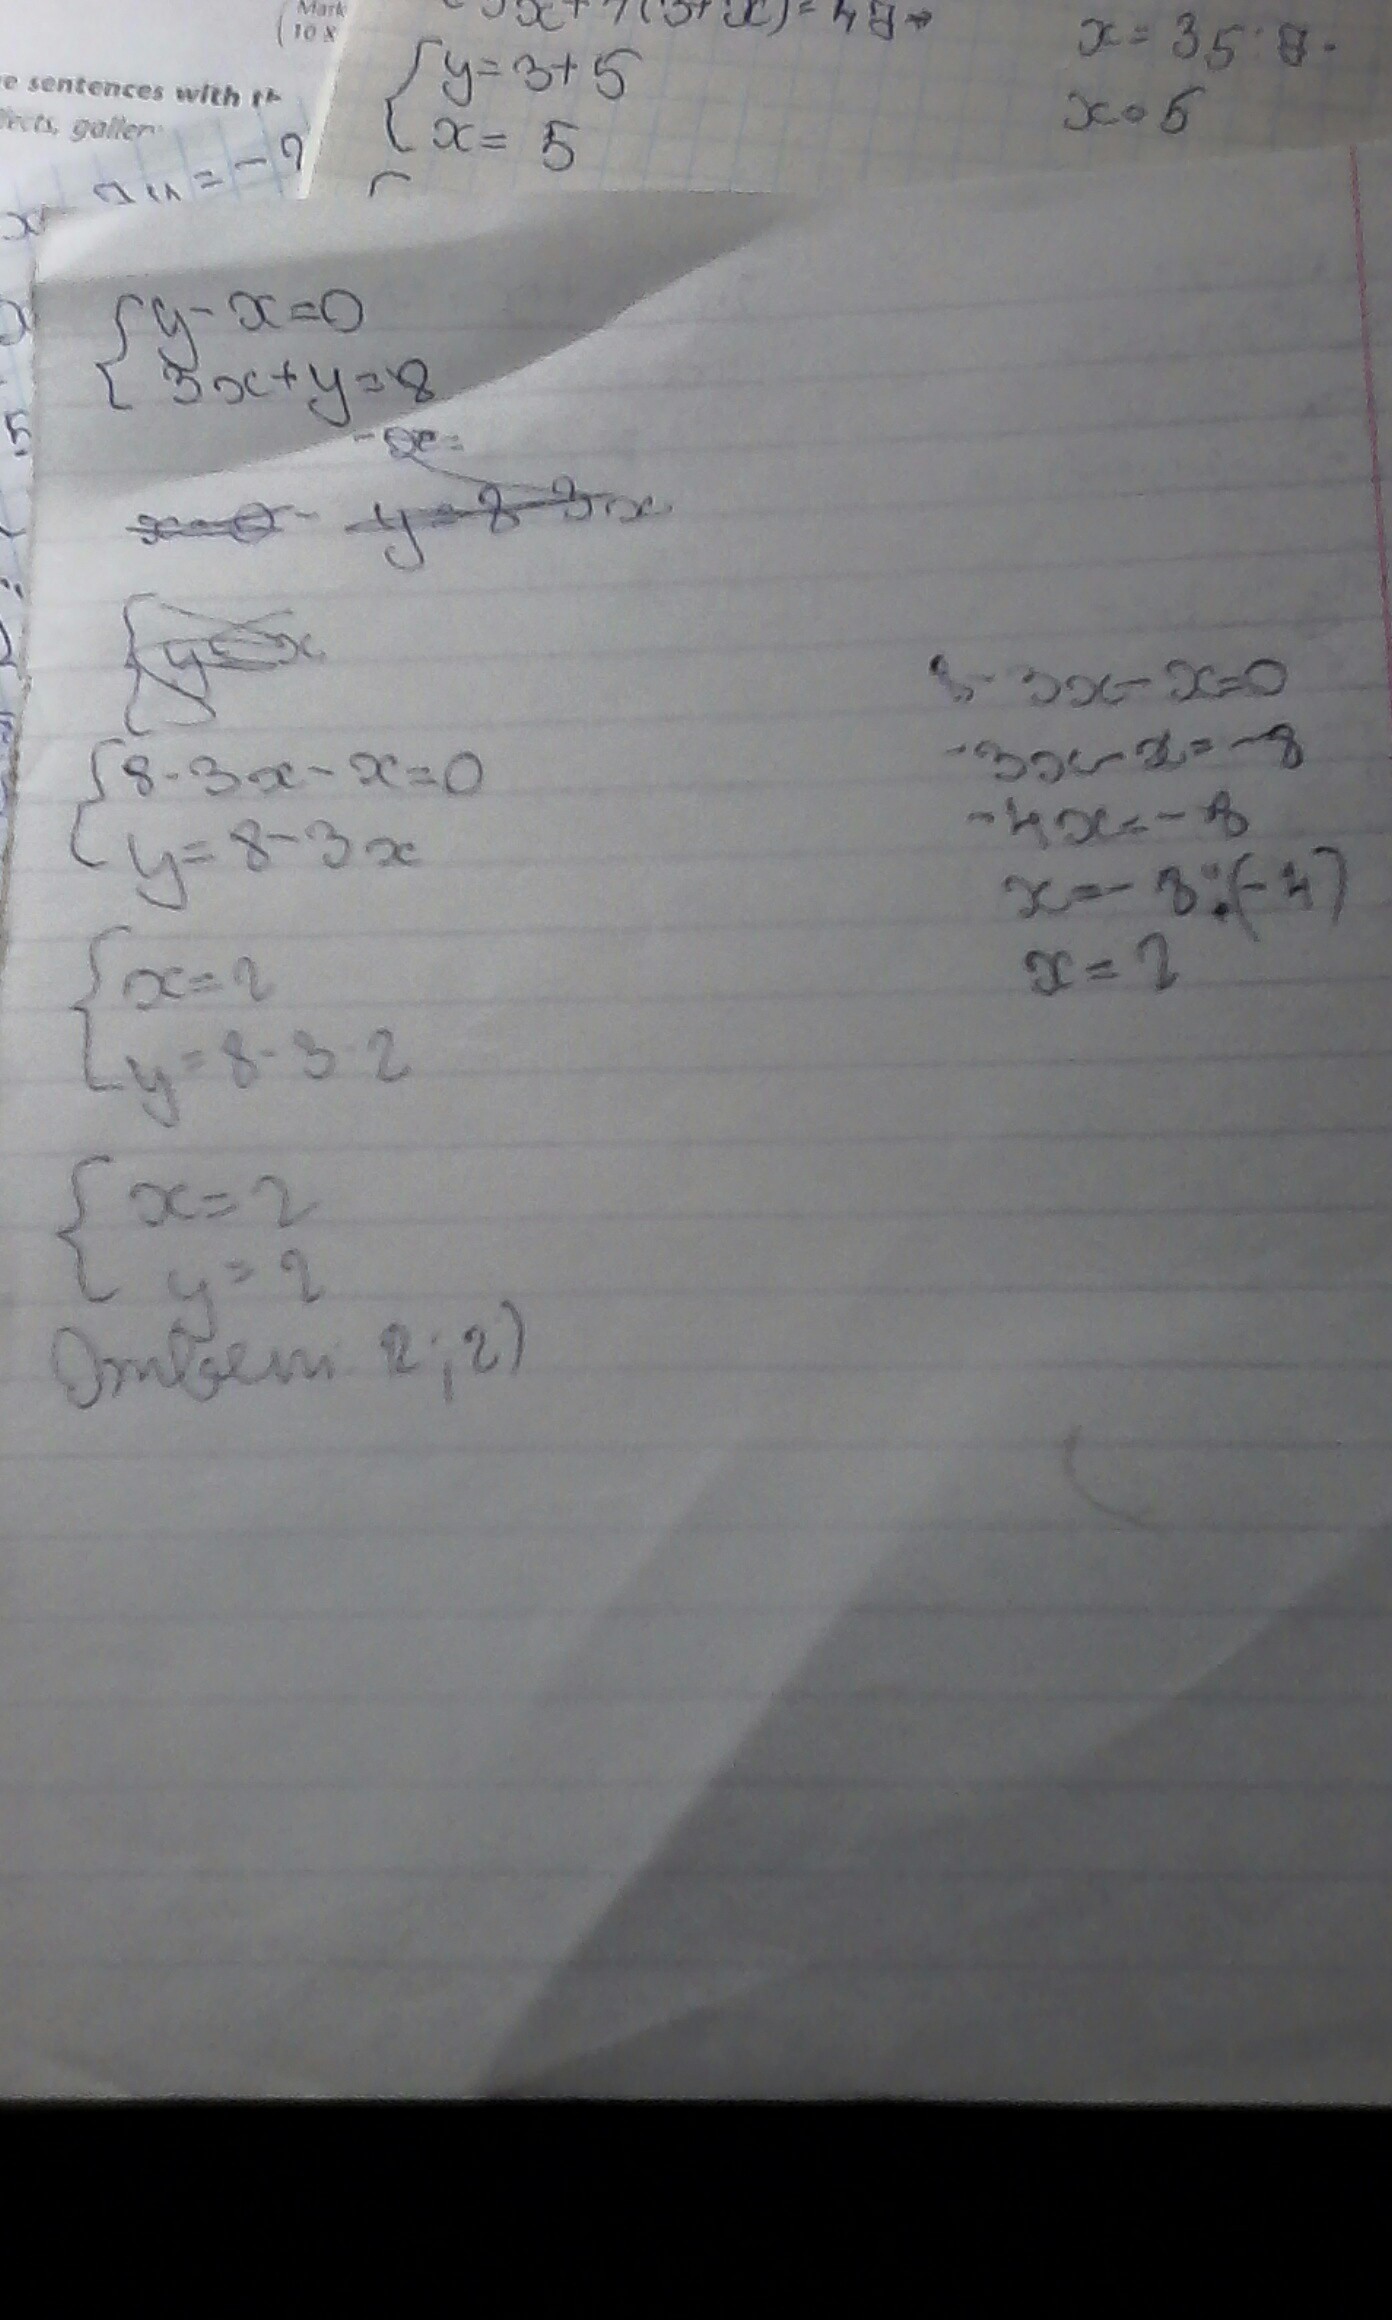 Mark
(10 x
e sentences with th
jects, galler
x + 7(3+x) = 4
{ y=3+5
x= 5
x=35:
x=5
{ y-x=0
3x+y=8
-x=
x=0- y=8-3x
{ y= x
{ 8-3x-x=0
y=8-3x
{ x=2
y=8-3·2
{ x=2
y=2
Ответ: 2;2)
8-3x-x=0
-3x-x=-8
-4x=-8
x=-8:(-4)
x=2